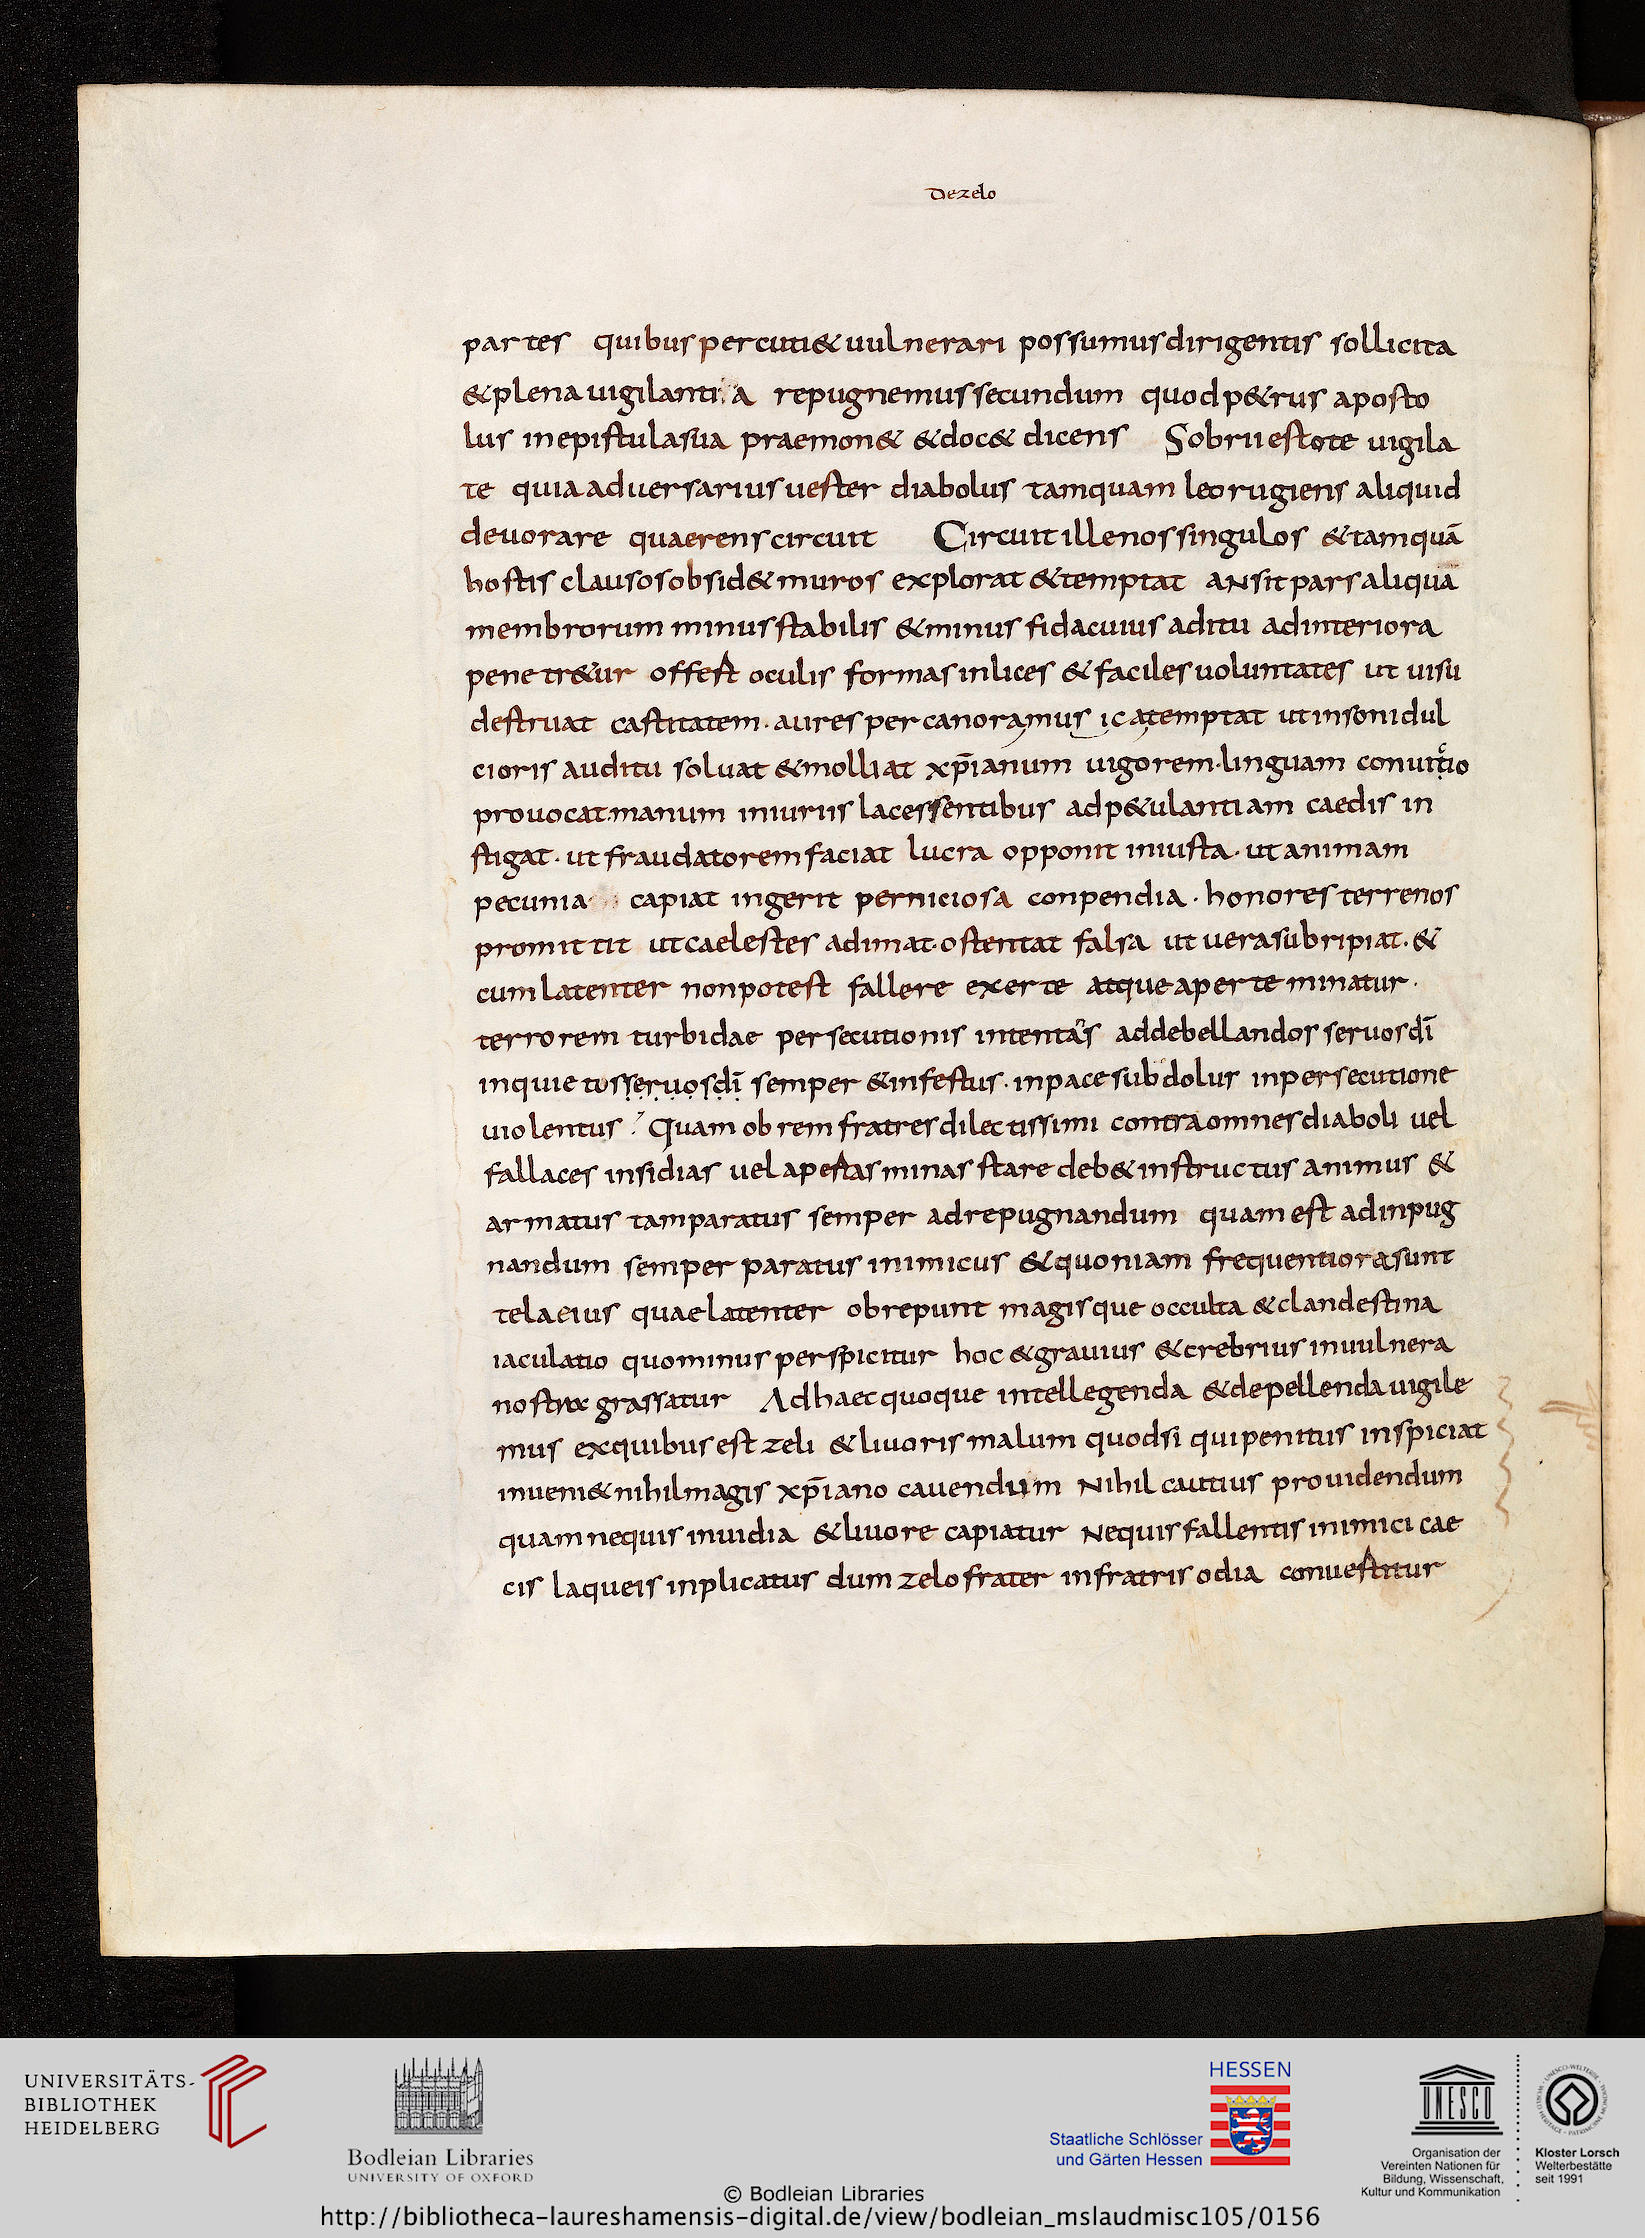 Dezelo
partes quibus percuti & uulnerari possumus dirigentis sollicita
& plena uigilantia repugnemus secundum quod p&rus aposto
lus in epistula sua praemon& & doc& dicens Sobrii estote uigila
te quia aduersarius uester diabolus tamquam leo rugiens aliquid
deuorare quaerens circuit Circuit ille nos singulos & tamquā
hostis clausos obsid& muros explorat & temptat aNsit pars aliqua
membrorum minus stabilis & minus fida cuius aditu ad interiora
penetr&ur offest oculis formas inlices & faciles uoluntates ut uisu
destruat castitatem · aures per canoramus ica temptat ut in soni dul
cioris auditu soluat & molliat xp̄ianum uigorem · linguam conuitio
prouocat · manum iniuriis lacessentibus ad p&ulantiam caedis in
stigat · ut fraudatorem faciat lucra opponit iniusta · ut animam
pecunia capiat ingerit perniciosa conpendia · honores terrenos
promittit ut caelestes adimat · ostentat falsa ut uera subripiat · &
cum latenter non potest fallere exerte atque aperte minatur ·
terrorem turbidae persecutionis intentās ad debellandos seruos dī
inquietus seruos dī semper & infestus · in pace subdolus in persecutione
uiolentus · Quam ob rem fratres dilectissimi contra omnes diaboli uel
fallaces insidias uel apertas minas stare deb& instructus animus &
armatus tam paratus semper ad repugnandum quam est ad inpug
nandum semper paratus inimicus & quoniam frequentiora sunt
tela eius quae latenter obrepunt magisque occulta & clandestina
iaculatio quo minus perspicitur hoc & grauius & crebrius in uulnera
nostra grassatur Ad haec quoque intellegenda & depellenda uigile
mus ex quibus est zeli & liuoris malum quod si qui penitus inspiciat
inueni& nihil magis xp̄iano cauendum Nihil cautius prouidendum
quam nequis inuidia & liuore capiatur Nequis fallentis inimici cae
cis laqueis inplicatus dum zelo frater in fratris odia conuestitur
UNIVERSITÄTS-
BIBLIOTHEK
HEIDELBERG
Bodleian Libraries
UNIVERSITY OF OXFORD
HESSEN
Staatliche Schlösser
und Gärten Hessen
UNESCO
Organisation der
Vereinten Nationen für
Bildung, Wissenschaft,
Kultur und Kommunikation
Kloster Lorsch
Welterbestätte
seit 1991
© Bodleian Libraries
http://bibliotheca-laureshamensis-digital.de/view/bodleian_mslaudmisc105/0156